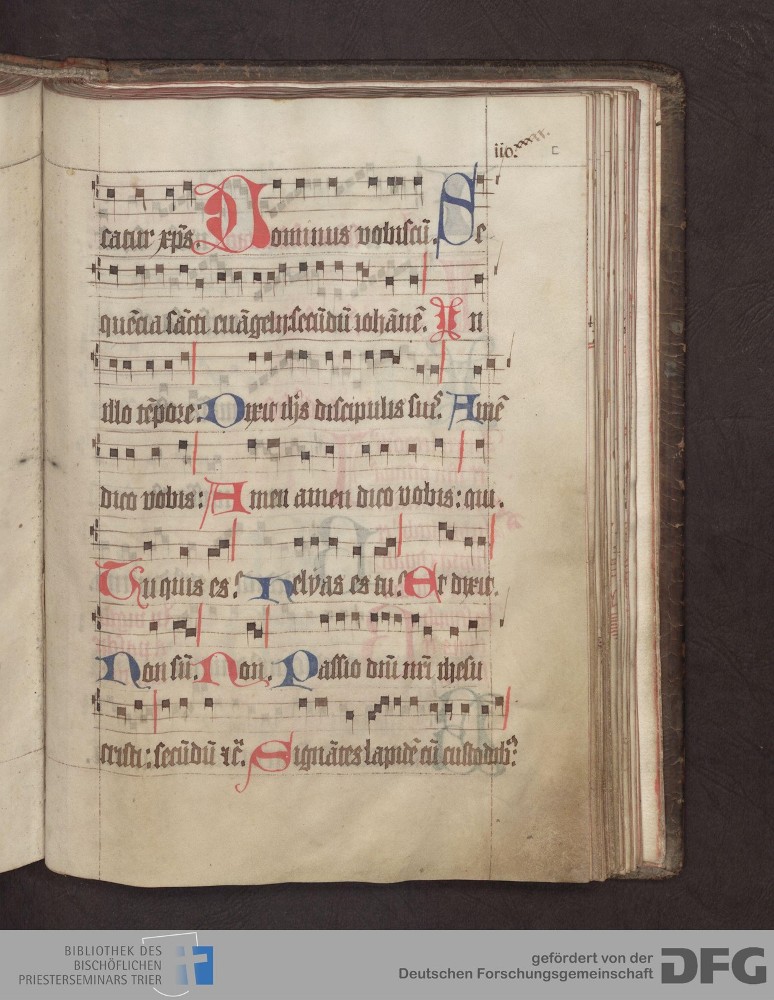 catur xp̄s. Dominus vobiscū. Se
quēcia sācti euāgelij. secūdū iohānē. In
illo tēpore: Dixit ih̄s discipulis suis. Amē
dico vobis: Amen amen dico vobis: qui.
Tu quis es? Helyas es tu? Et dixit.
Non sū. Non. Passio dn̄i nr̄i ihesu
cristi: secūdū ⁊c̄. Signātes lapidē cū custodib⁹
BIBLIOTHEK DES
BISCHÖFLICHEN
PRIESTERSEMINARS TRIER
gefördert von der
Deutschen Forschungsgemeinschaft
DFG